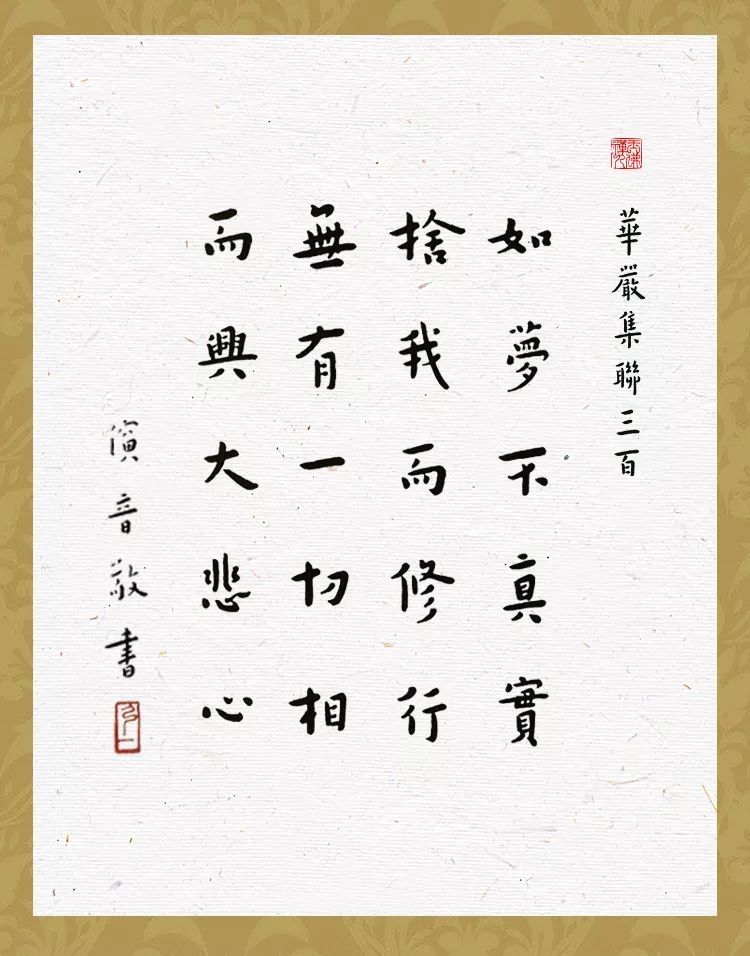 華嚴集聯三百
如夢不真實
捨我而修行
無有一切相
而興大悲心
音敬書